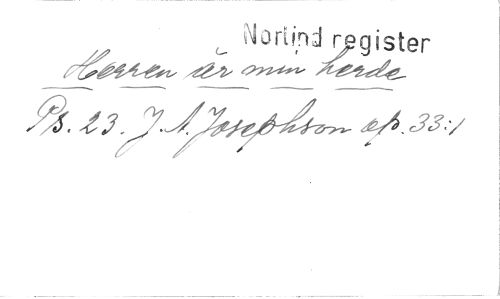 Norlind register
Herren är min herde
Ps. 23. J. A. Josephson op. 33:1